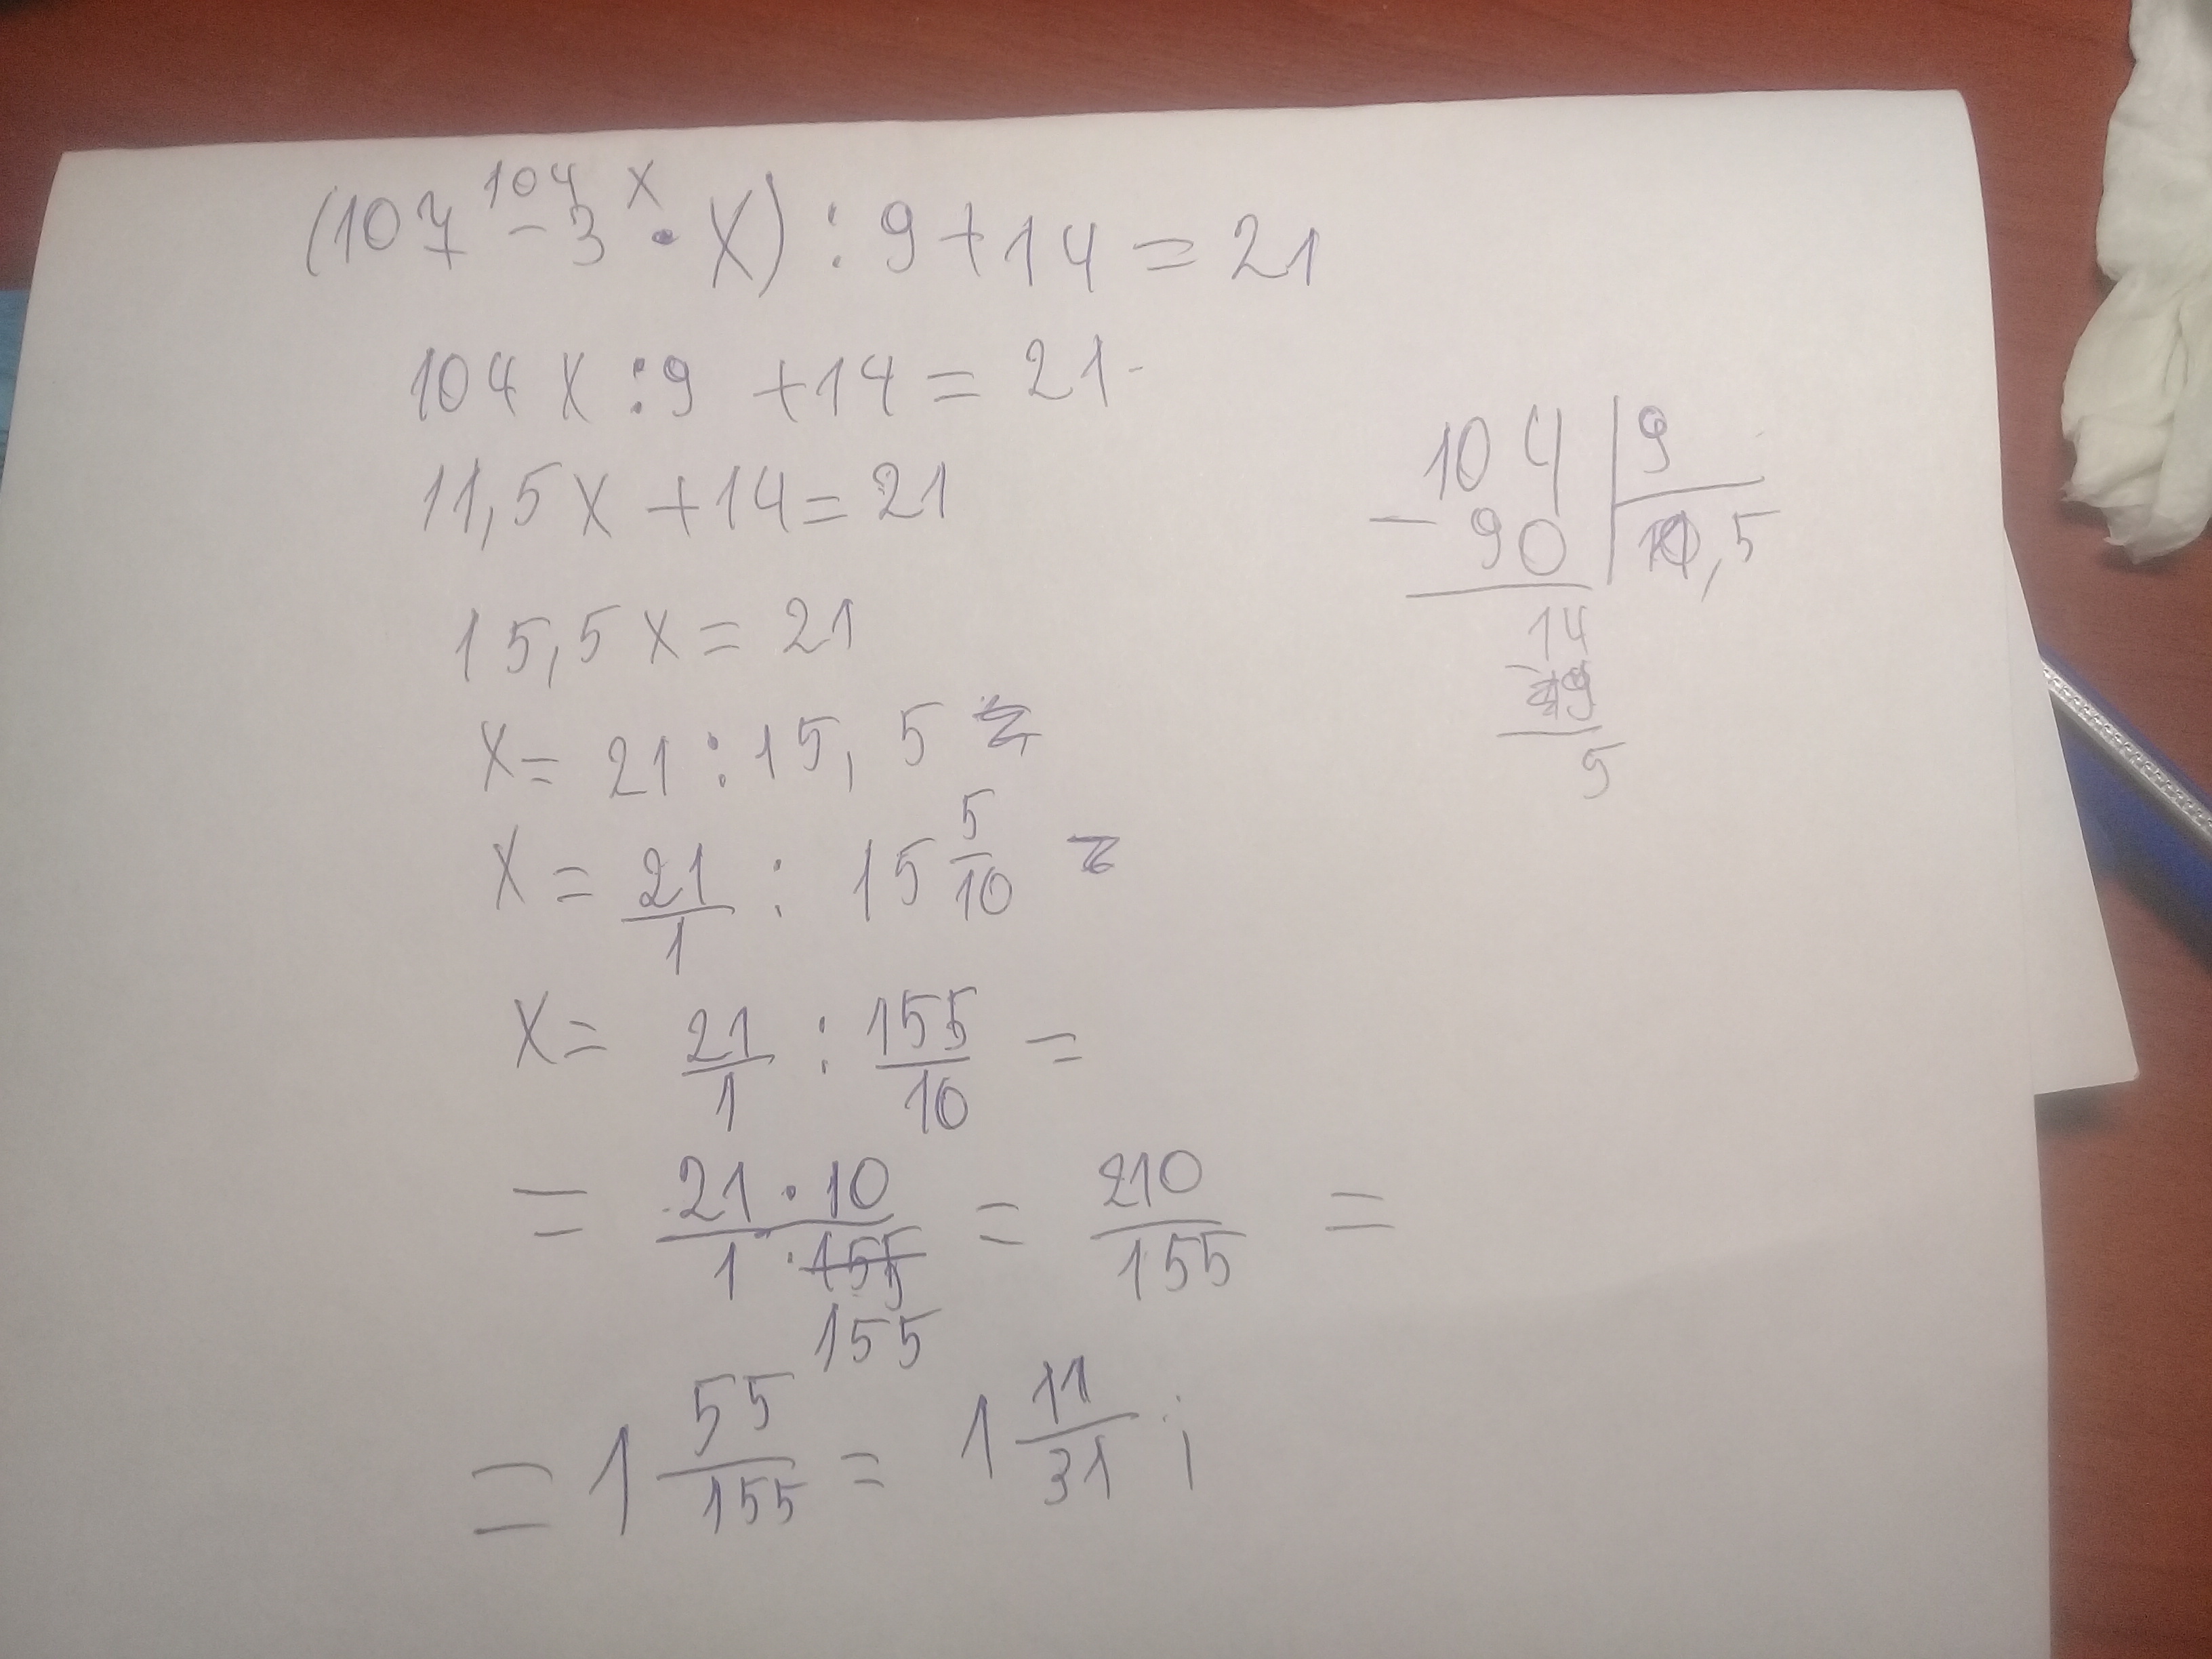 104 x
(107 - 3 · x) : 9 + 14 = 21
104 x : 9 + 14 = 21
11,5 x + 14 = 21
15,5 x = 21
x = 21 : 15,5
x = 21/1 : 15 5/10 =
x = 21/1 : 155/10 =
= 21 · 10 / 1 · 155 = 210/155 =
155
= 1 55/155 = 1 11/31 ;
104 | 9
- 90 | 11,5
14
- 9
5